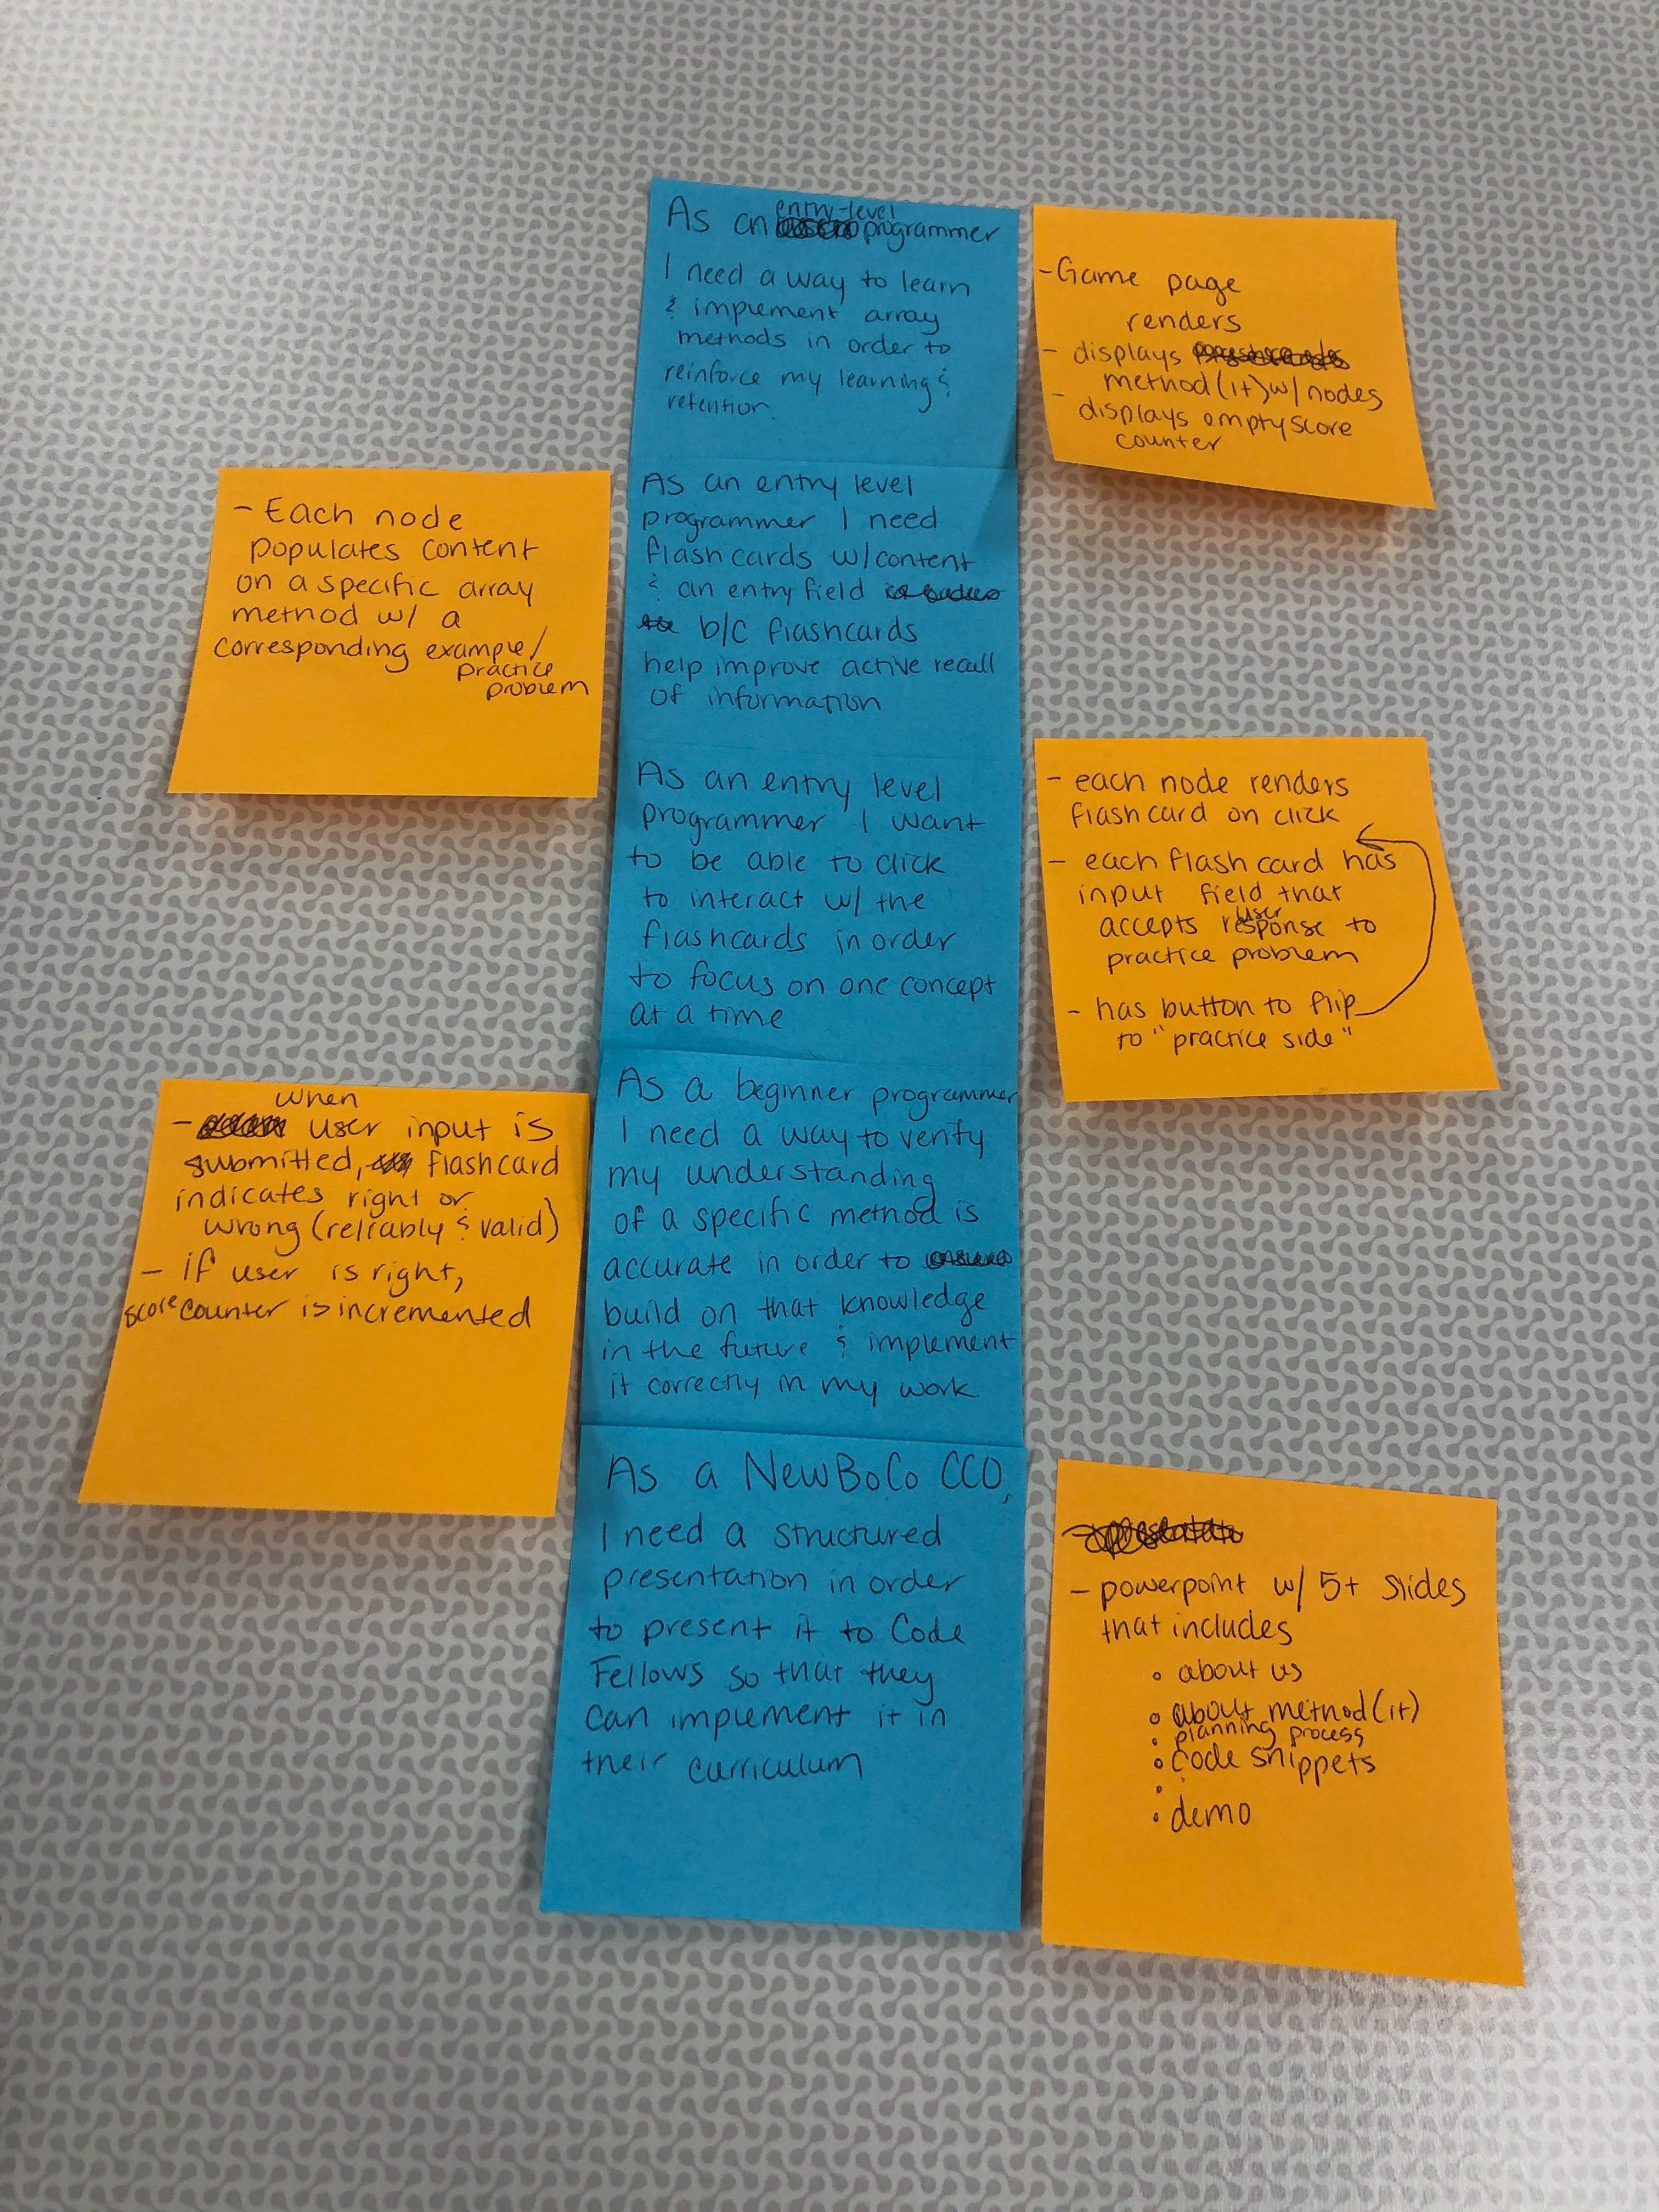 As an entry-level programmer
I need a way to learn
& implement array
methods in order to
reinforce my learning &
retention.
- Game page
renders
- displays
method(it) w/ nodes
- displays empty score
counter
As an entry level
programmer I need
flashcards w/content
& an entry field
b/c flashcards
help improve active recall
of information
- Each node
populates content
on a specific array
method w/ a
corresponding example/
practice
problem
As an entry level
programmer I want
to be able to click
to interact w/ the
flashcards in order
to focus on one concept
at a time
- each node renders
flash card on click
- each flash card has
input field that
accepts user response to
practice problem
- has button to flip
to "practice side"
As a beginner programmer
I need a way to verify
my understanding
of a specific method is
accurate in order to
build on that knowledge
in the future & implement
it correctly in my work
- when user input is
submitted, flashcard
indicates right or
wrong (reliably & valid)
- if user is right,
score counter is incremented
As a NewBoCo CCO,
I need a structured
presentation in order
to present it to Code
Fellows so that they
can implement it in
their curriculum
- powerpoint w/ 5+ slides
that includes
• about us
• about method(it)
• planning process
• code snippets
•
• demo